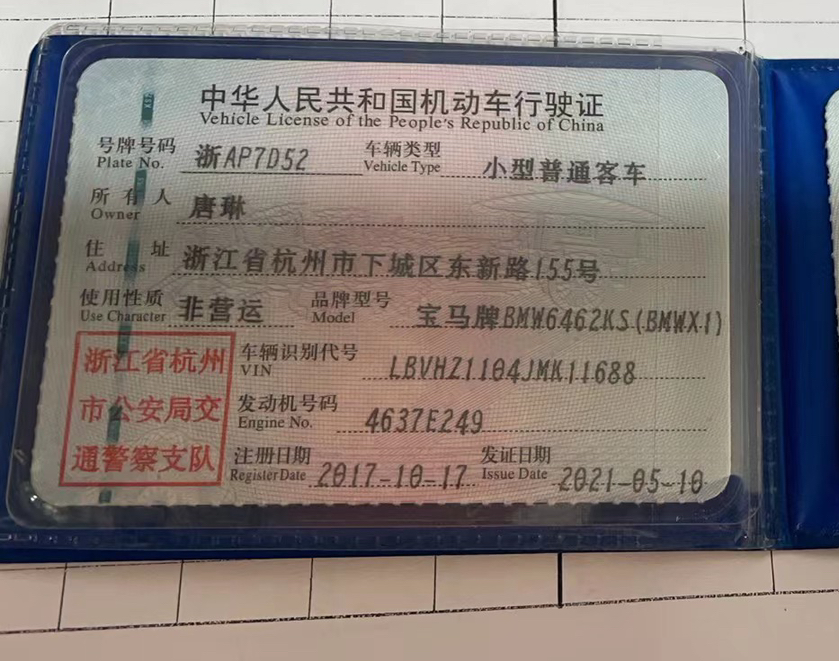 中华人民共和国机动车行驶证
Vehicle License of the People's Republic of China
号牌号码 浙AP7D52 车辆类型 小型普通客车
Plate No. Vehicle Type
所有人 唐琳
Owner
住址 浙江省杭州市下城区东新路155号
Address
使用性质 非营运 品牌型号 宝马牌BMW6462KS(BMWX1)
Use Character Model
浙江省杭州 车辆识别代号 LBVHZ1104JMK11688
VIN
市公安局交 发动机号码 4637E249
Engine No.
通警察支队 注册日期 2017-10-17 发证日期 2021-05-10
Register Date Issue Date